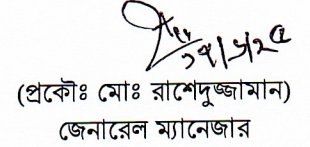 ২৭/১/২৫
(প্রকৌঃ মোঃ রাশেদুজ্জামান)
জেনারেল ম্যানেজার